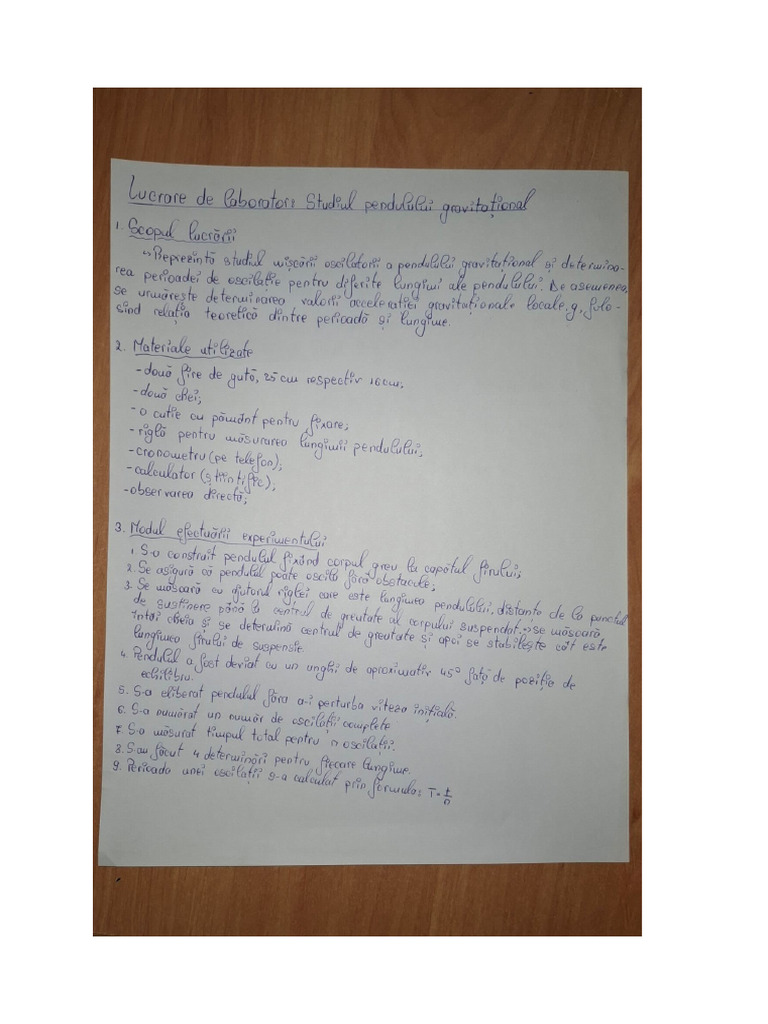 Lucrare de laborator: Studiul pendulului gravitațional
1. Scopul lucrării
↳ Reprezintă studiul mișcării oscilatorii a pendulului gravitațional și determina-
rea perioadei de oscilație pentru diferite lungimi ale pendulului. De asemenea,
se urmărește determinarea valorii accelerației gravitaționale locale, g, folo-
sind relația teoretică dintre perioadă și lungime.
2. Materiale utilizate
- două fire de gută, 25 cm respectiv 16 cm;
- două chei;
- o cutie cu pământ pentru fixare;
- riglă pentru măsurarea lungimii pendulului;
- cronometru (pe telefon);
- calculator (științific);
- observarea directă;
3. Modul efectuării experimentului
1. S-a construit pendulul fixând corpul greu la capătul firului;
2. Se asigură că pendulul poate oscila fără obstacole;
3. Se măsoară cu ajutorul riglei care este lungimea pendulului, distanța de la punctul
de susținere până la centrul de greutate al corpului suspendat. → se măsoară
întâi cheia și se determină centrul de greutate și apoi se stabilește cât este
lungimea firului de suspensie.
4. Pendulul a fost deviat cu un unghi de aproximativ 45° față de poziția de
echilibru.
5. S-a eliberat pendulul fără a-i perturba viteza inițială.
6. S-a numărat un număr de oscilații complete
7. S-a măsurat timpul total pentru n oscilații.
8. S-au făcut 4 determinări pentru fiecare lungime.
9. Perioada unei oscilații s-a calculat prin formula: T = t/n